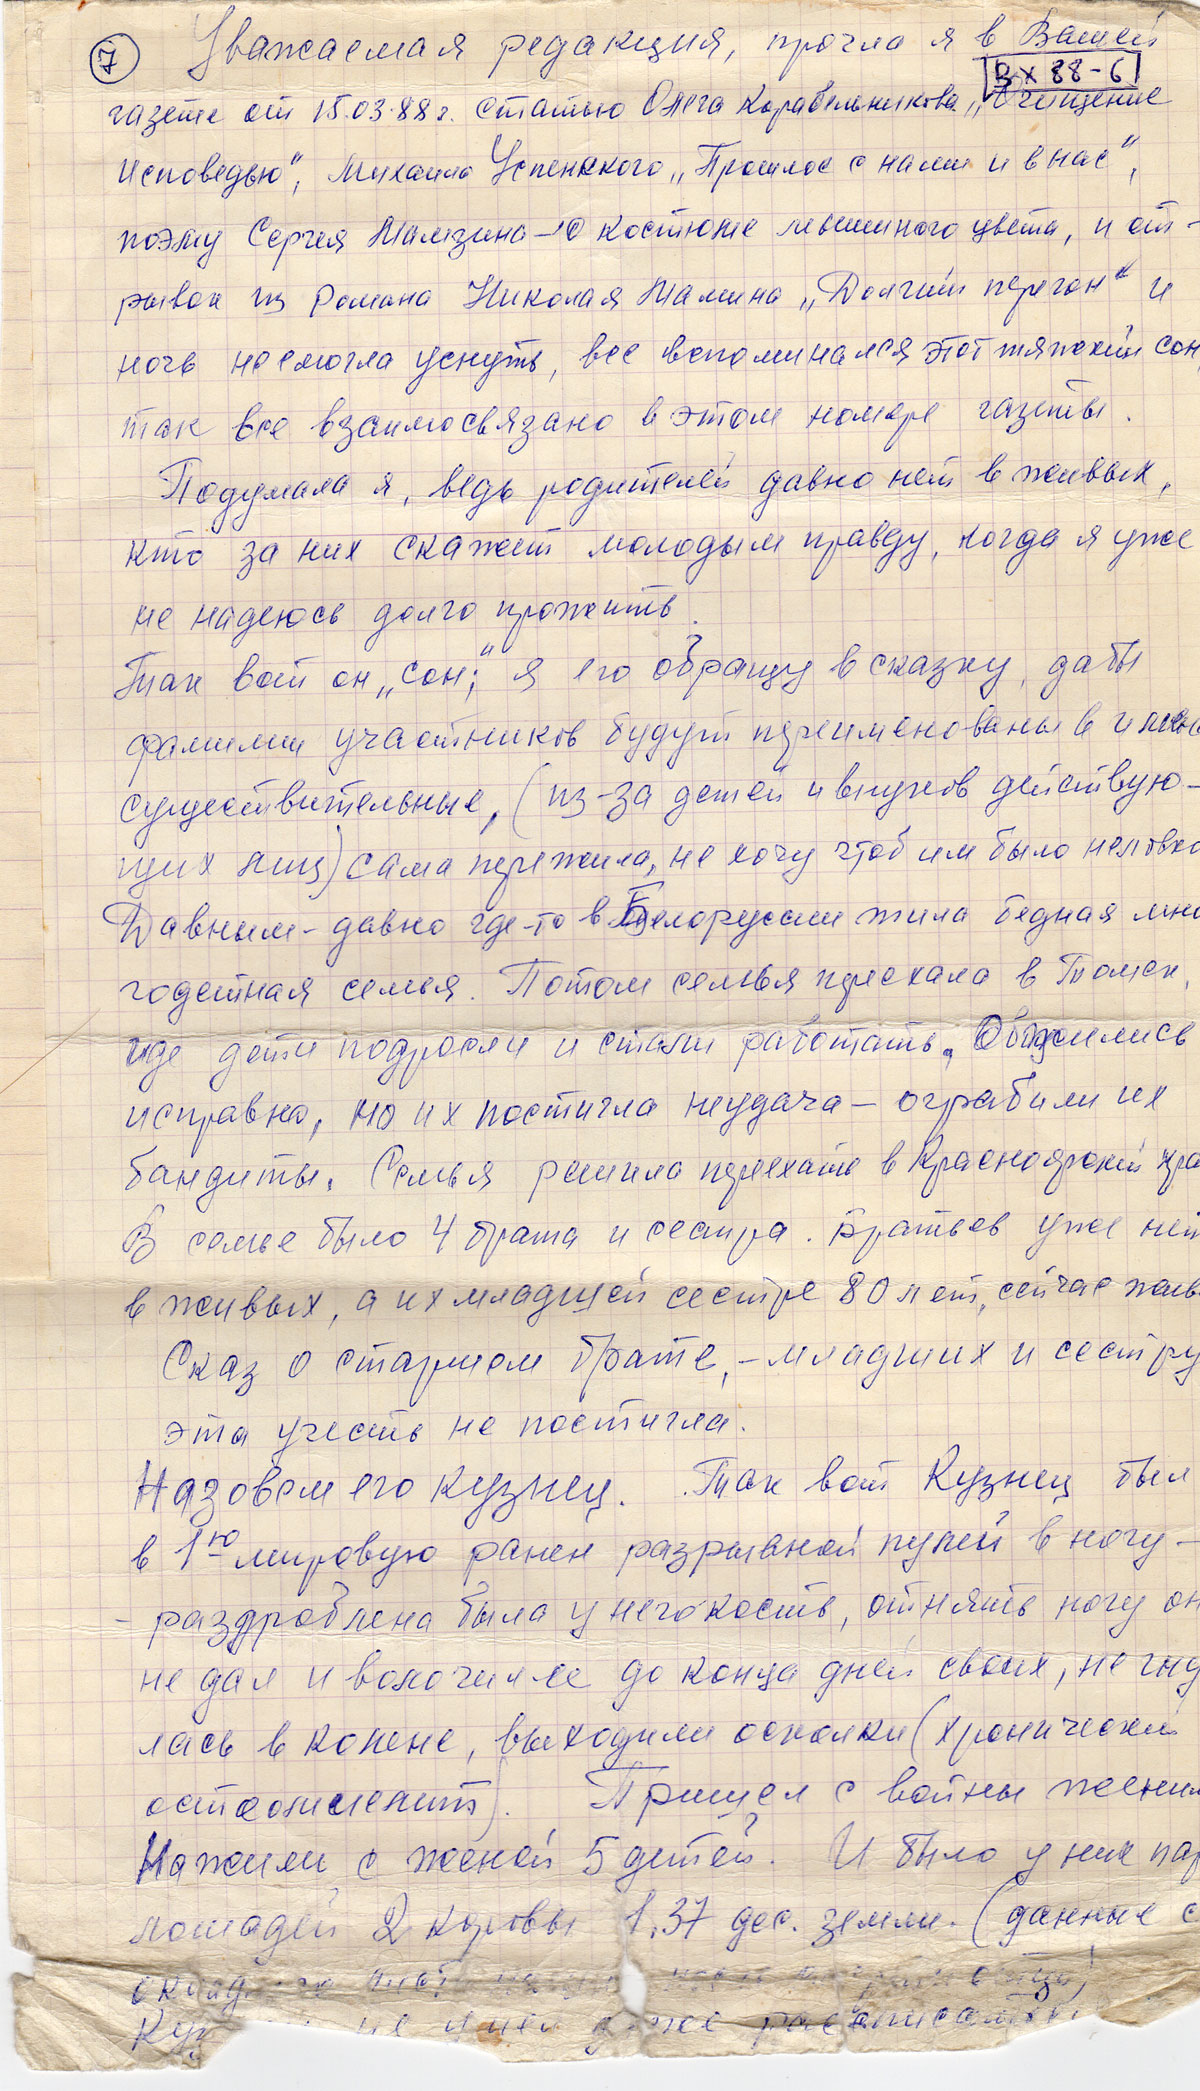 7 Уважаемая редакция, прочла я в Вашей
Вх 88-6
газете от 15.03.88 г. статью Олега Корабельникова „Очищение
исповедью", Михаила Успенского „Прошлое с нами и в нас",
поэму Сергея Мамзина – О костюме мышиного цвета, и от-
рывок из романа Николая Мамина „Долгий перегон" и
ночь не смогла уснуть, все вспоминался этот тяжкий сон,
так все взаимосвязано в этом номере газеты.
Подумала я, ведь родителей давно нет в живых,
кто за них скажет молодым правду, когда я уже
не надеюсь долго прожить.
Так вот он „сон", я его обращу в сказку, дабы
фамилии участников будут переименованы в имена
существительные, (из-за детей и внуков действую-
щих лиц) сама пережила, не хочу чтоб им было неловко
Давным-давно где-то в Белоруссии жила бедная мно
годетная семья. Потом семья приехала в Томск,
где дети подросли и стали работать. Обжились
исправно, но их постигла неудача – ограбили их
бандиты. Семья решила переехать в Красноярский кра
В семье было 4 брата и сестра. Братьев уже нет
в живых, а их младшей сестре 80 лет, сейчас жив
Сказ о старшем брате, – младших и сестру
эта участь не постигла.
Назовем его кузнец. Так вот Кузнец был
в 1ю мировую ранен разрывной пулей в ногу –
– раздроблена была у него кость, отнять ногу он
не дал и волочил ее до конца дней своих, не гну
лась в колене, выходили осколки (хронический
остеомиелит). Пришел с войны женил
Нажили с женой 5 детей. И было у них пар
лошадей 2 коровы 1,37 дес. земли. (данные с
окладного отца)
Куз не умел даже расписаться